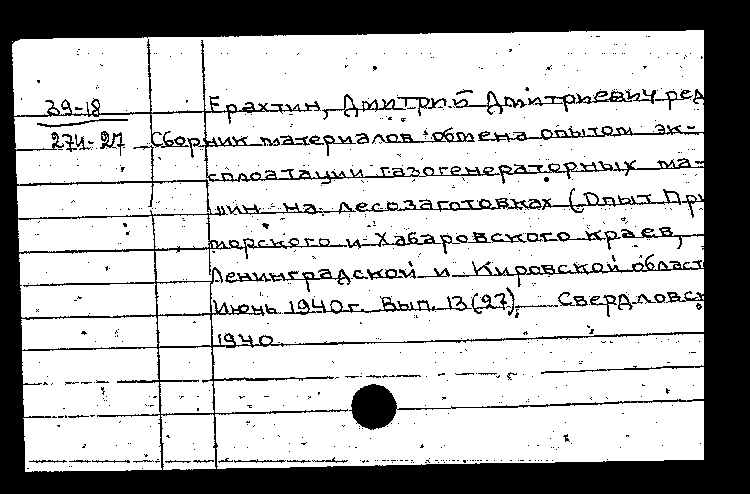 39-18
274-27
Ерахтин, Дмитрий Дмитриевич ред
Сборник материалов обмена опытом эк-
сплоатации газогенераторных ма-
шин на лесозаготовках (Опыт При
морского и Хабаровского краев,
Ленинградской и Кировской област
Июнь 1940г. Вып. 13(27). Свердловск
1940.